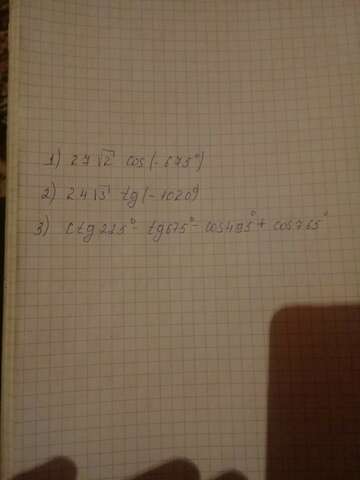 1) 27√2 cos(-675°)
2) 24√3 tg(-1020°)
3) Ctg225° - tg675° - cos495° + cos765°